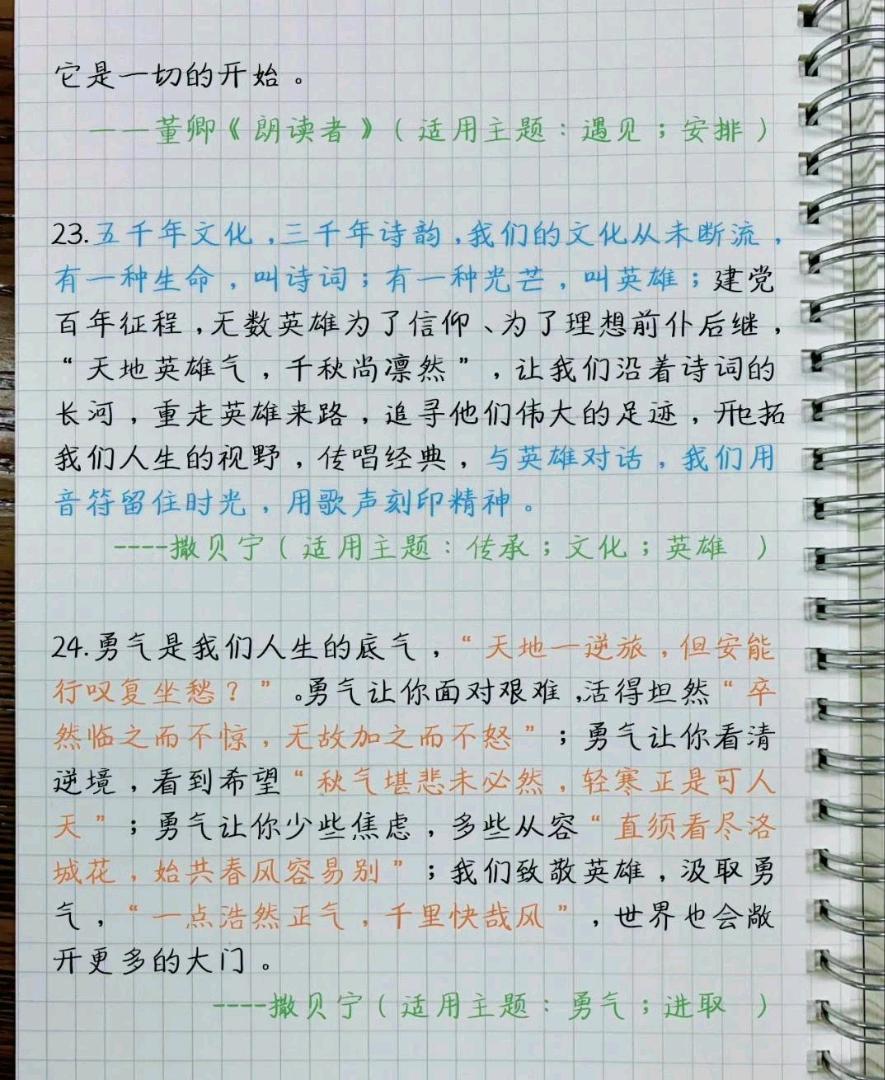 它是一切的开始。
——董卿《朗读者》(适用主题：遇见；安排)
23.五千年文化,三千年诗韵,我们的文化从未断流,
有一种生命,叫诗词;有一种光芒,叫英雄;建党
百年征程,无数英雄为了信仰、为了理想前仆后继,
“天地英雄气,千秋尚凛然”,让我们沿着诗词的
长河,重走英雄来路,追寻他们伟大的足迹,开拓
我们人生的视野,传唱经典,与英雄对话,我们用
音符留住时光,用歌声刻印精神。
----撒贝宁(适用主题：传承;文化;英雄 )
24.勇气是我们人生的底气,“天地一逆旅,但安能
行叹复坐愁?”。勇气让你面对艰难,活得坦然“卒
然临之而不惊,无故加之而不怒”;勇气让你看清
逆境,看到希望“秋气堪悲未必然,轻寒正是可人
天”;勇气让你少些焦虑,多些从容“直须看尽洛
城花,始共春风容易别”;我们致敬英雄,汲取勇
气,“一点浩然正气,千里快哉风”,世界也会敞
开更多的大门。
----撒贝宁(适用主题：勇气;进取 )